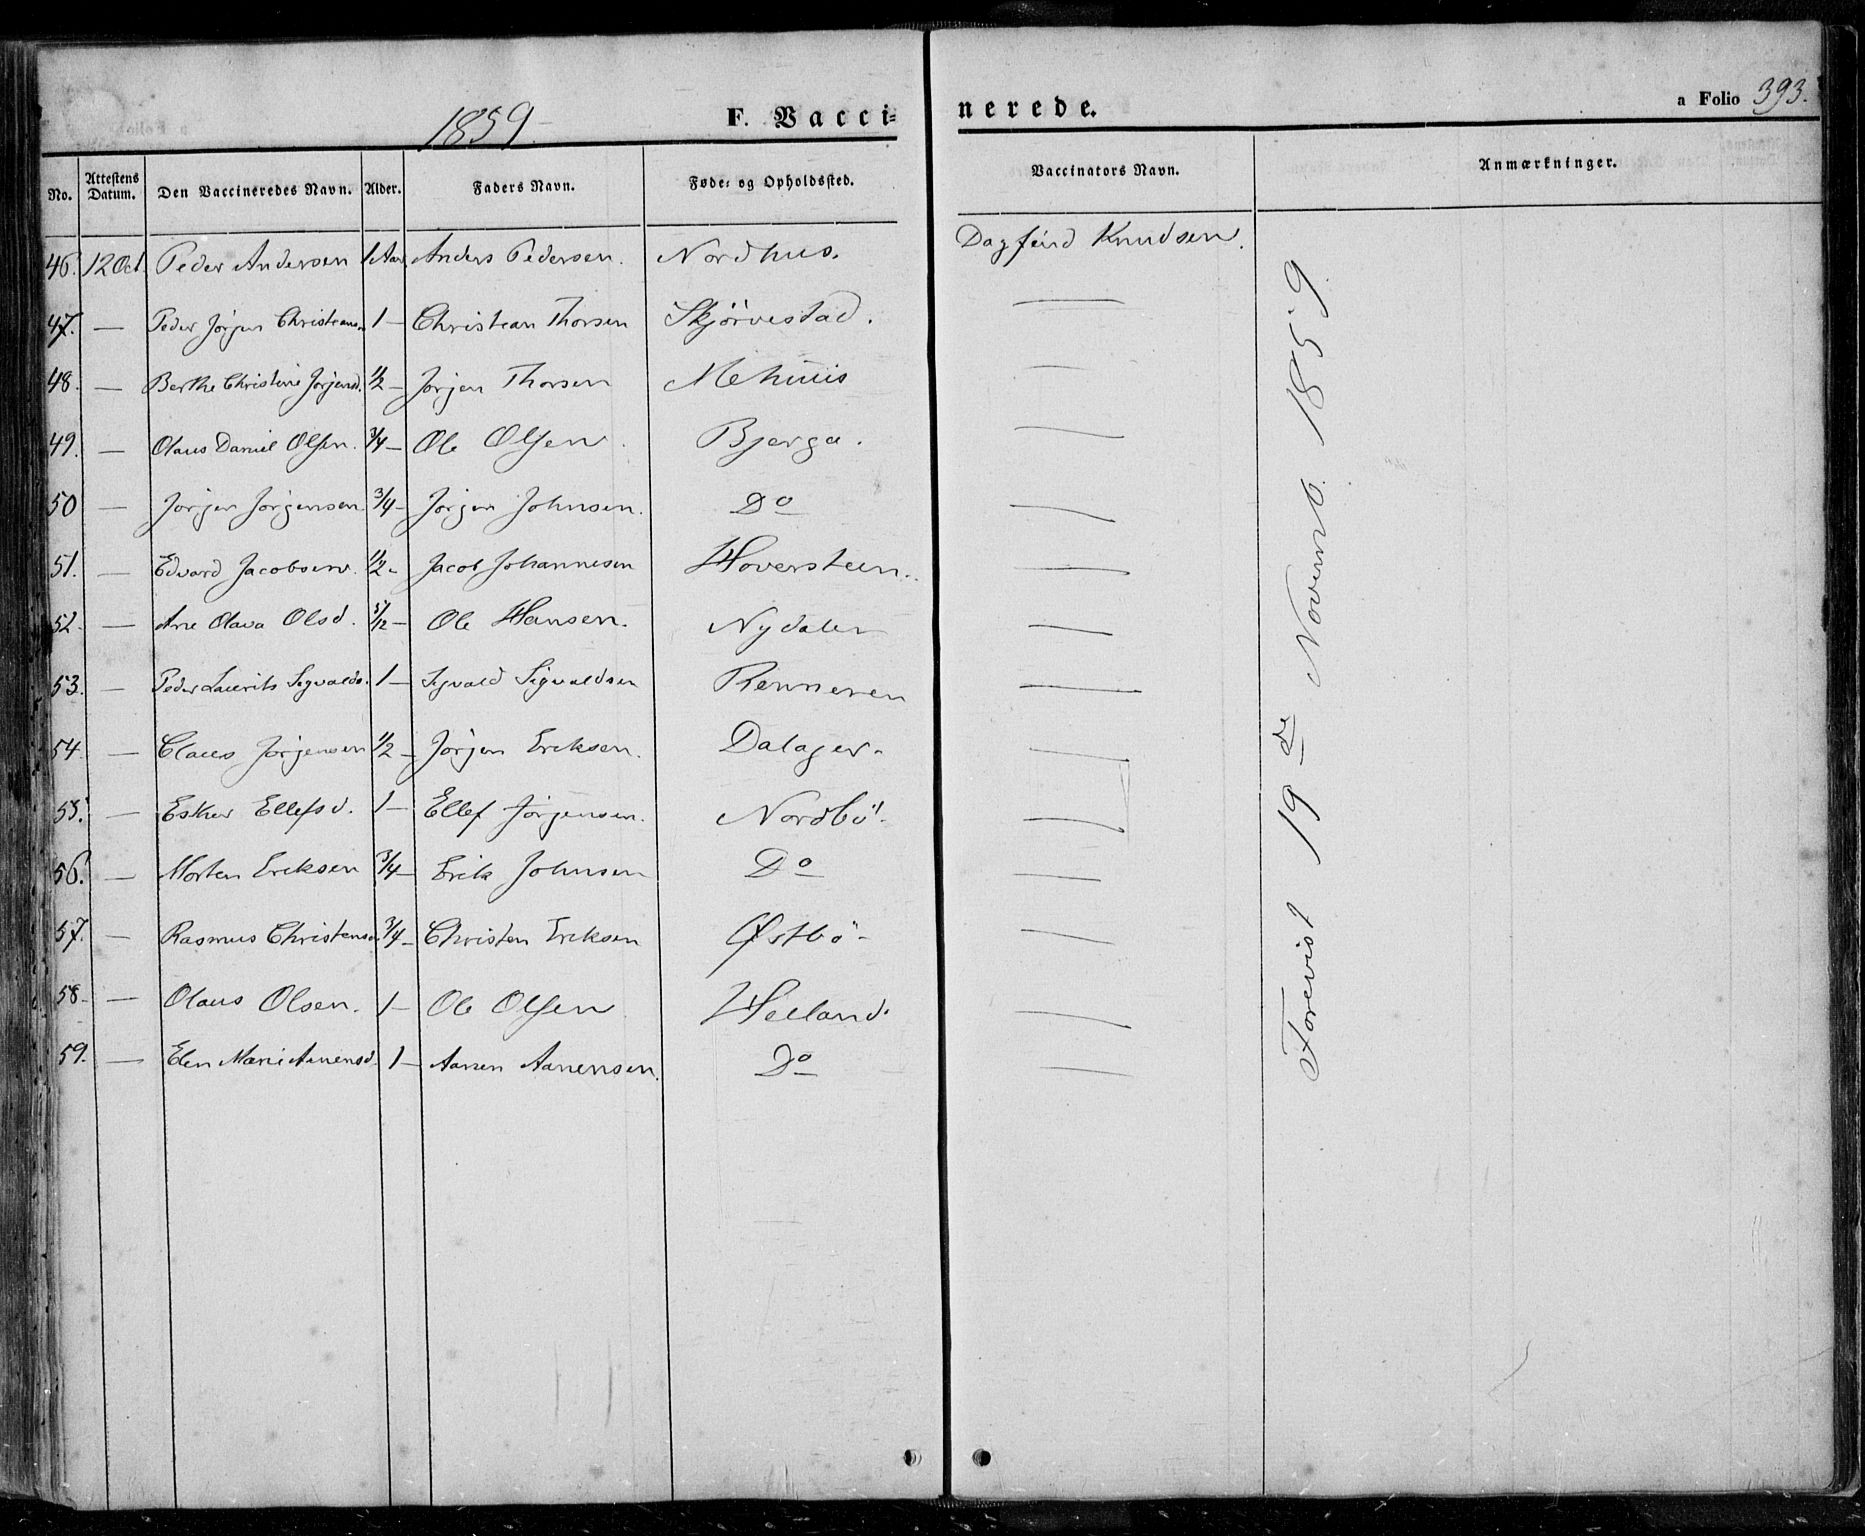 1859 F. Vacci= nerede. a Folio 393.
No. Attestens Datum. Den Vaccineredes Navn. Alder. Faders Navn. Føde= og Opholdssted. Vaccinators Navn. Anmærkninger.
46. 12 Oct. Peder Andersen 1 Aar Anders Pedersen. Nordhus. Dagfind Knudsen.
47. — Peder Jørgen Christians. 1 — Christian Thorsen Skjörvestad. —
48. — Berthe Christine Jørgensd. 1/2 — Jørgen Thorsen Mehuus —
49. — Olaus Daniel Olsen. 3/4 — Ole Olsen. Bjerga. —
50 — Jørgen Jørgensen 3/4 — Jørgen Johnsen. Do —
51. — Edvard Jacobsen. 1/2 - Jacob Johannesen Hoversteen. —
52. — Ane Olava Olsd. 5/12 — Ole Hansen. Nydalen —
53. — Peder Laurits Sigvalds. 1 — Sigvald Sigvaldsen Renneren —
54. — Claus Jørgensen 1/2 — Jørgen Eriksen. Dalager. —
55. — Esther Ellefsd. 1 — Ellef Jørgensen. Nordbö. —
56. — Morten Ericksen 3/4 — Erik Johnsen Do —
57. — Rasmus Christens. 3/4 — Christen Eriksen Østbö —
58. — Olaus Olsen. 1 — Ole Olsen Helland. —
59. — Elen Marie Aanensd. 1 — Aanen Aanensen. Do —
Forevist 19de Novemb. 1859.